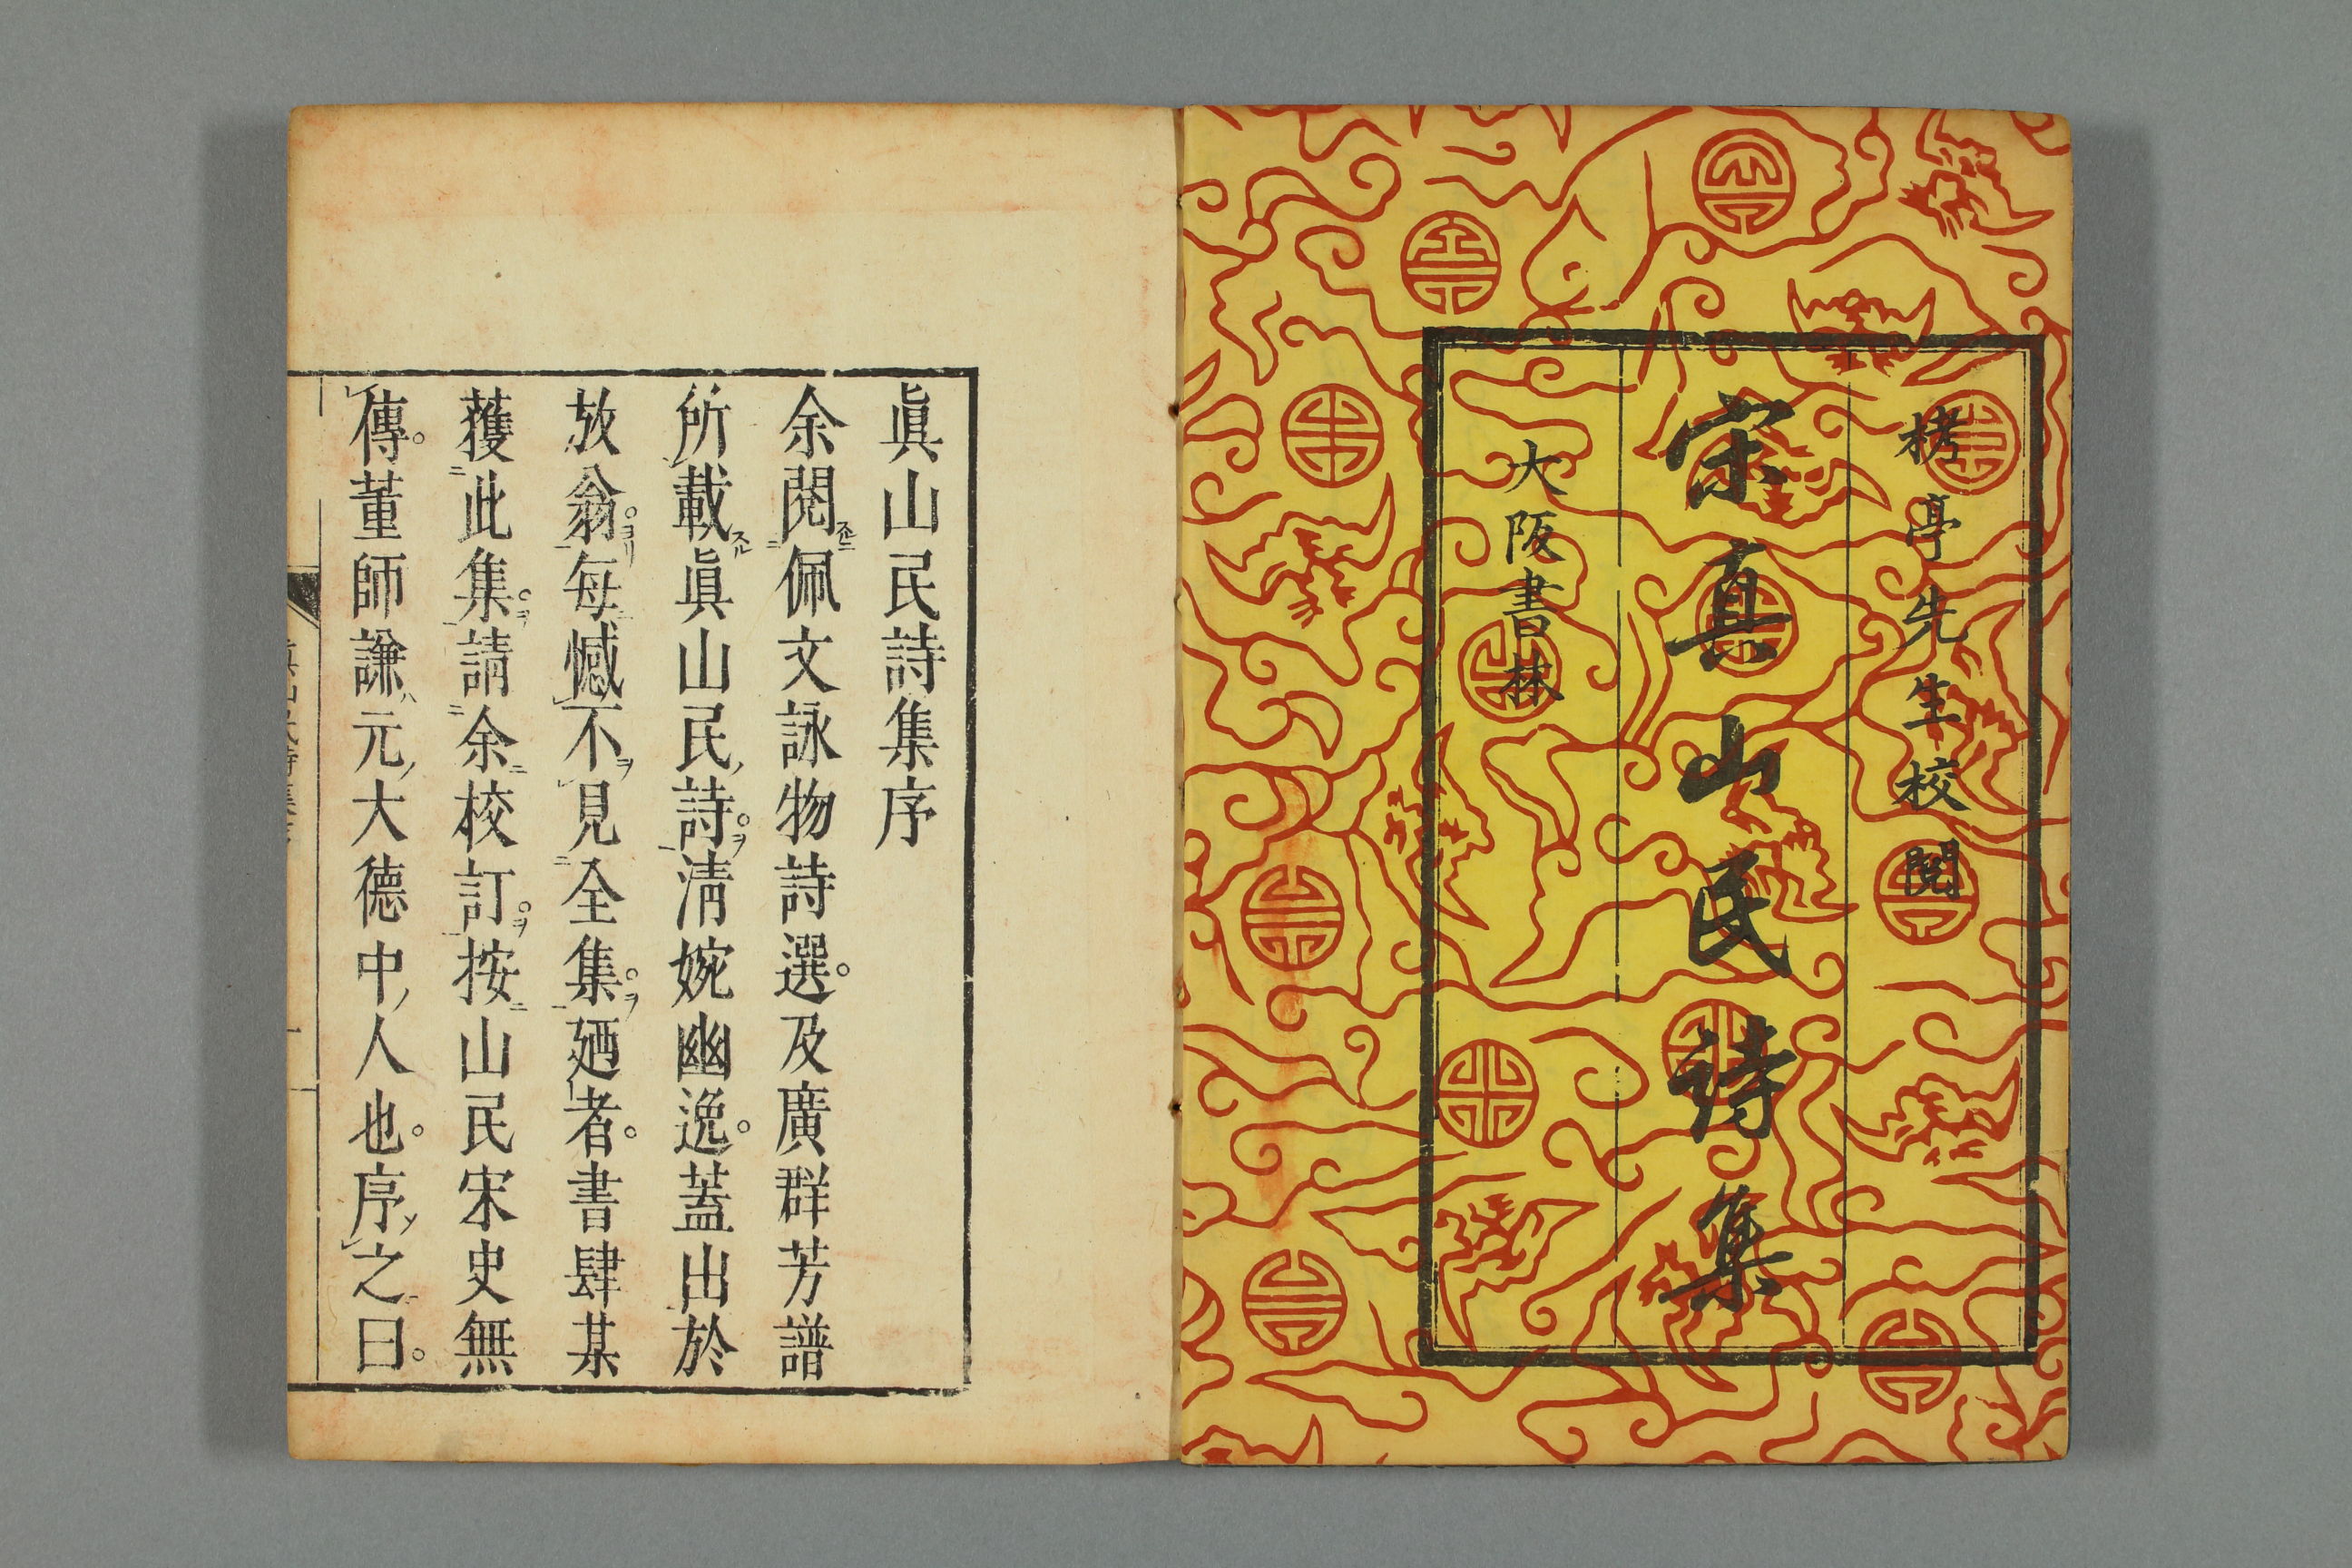 栲亭先生校閲
宋真山民詩集
大阪書林
眞山民詩集序
余閱佩文詠物詩選。及廣群芳譜
所載眞山民詩。清婉幽逸。蓋出於
放翁。每憾不見全集。廼者。書肆某
獲此集。請余校訂。按山民宋史無
傳。董師謙元大德中人也。序之曰。